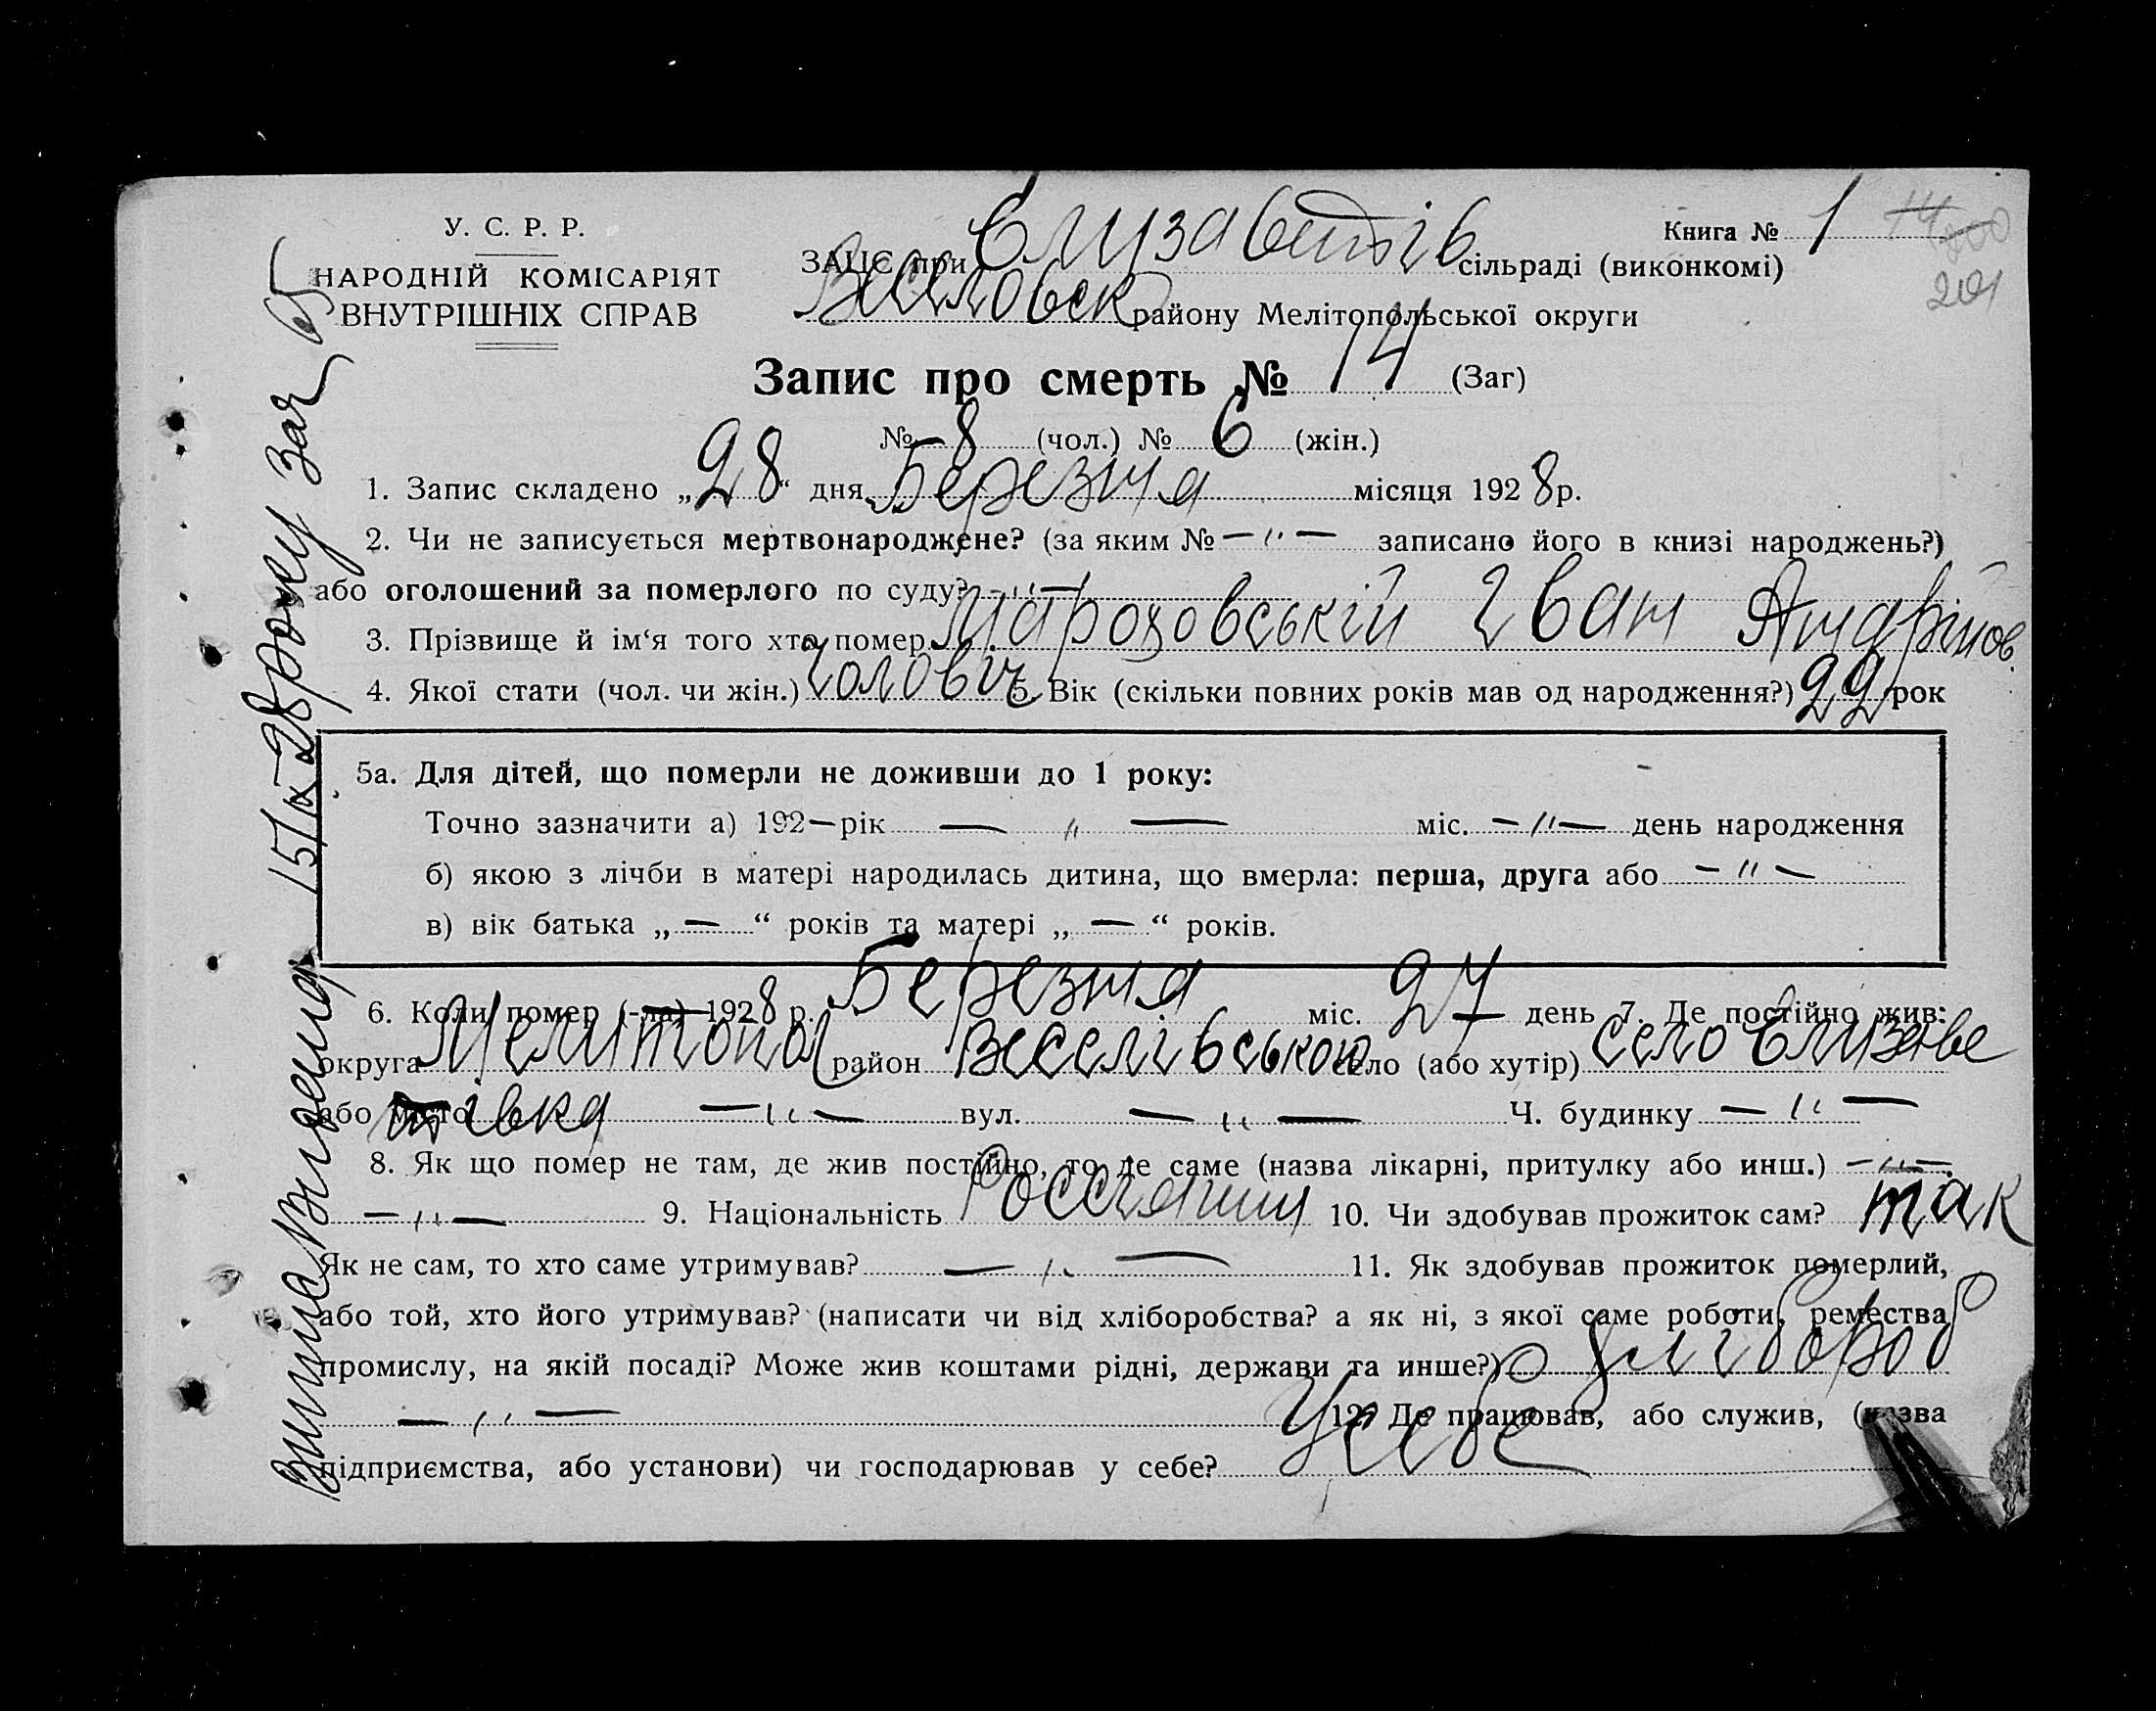 У. С. Р. Р.
НАРОДНІЙ КОМІСАРІЯТ
ВНУТРІШНІХ СПРАВ
Книга № 1
201
ЗАЦС при Елизаветів сільраді (виконкомі)
Веселовск району Мелітопольської округи
Запис про смерть № 14 (Заг)
№ 8 (чол.) № 6 (жін.)
1. Запис складено „28“ дня Березня місяця 1928 р.
2. Чи не записується мертвонароджене? (за яким № — „ — записано його в книзі народжень?)
або оголошений за померлого по суду? — „ —
3. Прізвище й ім‘я того хто помер Іван Андрійов.
4. Якої стати (чол. чи жін.) чоловіч 5. Вік (скільки повних років мав од народження?) 22 рок
5а. Для дітей, що померли не доживши до 1 року:
Точно зазначити а) 192— рік — „ — міс. — „ — день народження
б) якою з лічби в матері народилась дитина, що вмерла: перша, друга або — „ —
в) вік батька „ — “ років та матері „ — “ років.
6. Коли помер (-ла) 1928 р. Березня міс. 27 день 7. Де постійно жив:
округа Мелитопол район Веселівською село (або хутір) село Елизаве
або місто тівка — „ — вул. — „ — Ч. будинку — „ —
8. Як що помер не там, де жив постійно, то де саме (назва лікарні, притулку або инш.) — „ —
— „ — 9. Національність Россіянин 10. Чи здобував прожиток сам? так
Як не сам, то хто саме утримував? — „ — 11. Як здобував прожиток померлий,
або той, хто його утримував? (написати чи від хліборобства? а як ні, з якої саме роботи, ремества,
промислу, на якій посаді? Може жив коштами рідні, держави та инше?) хлібороб
— „ — 12. Де працював, або служив, (назва
підприємства, або установи) чи господарював у себе? У себе
15/IX 28 року